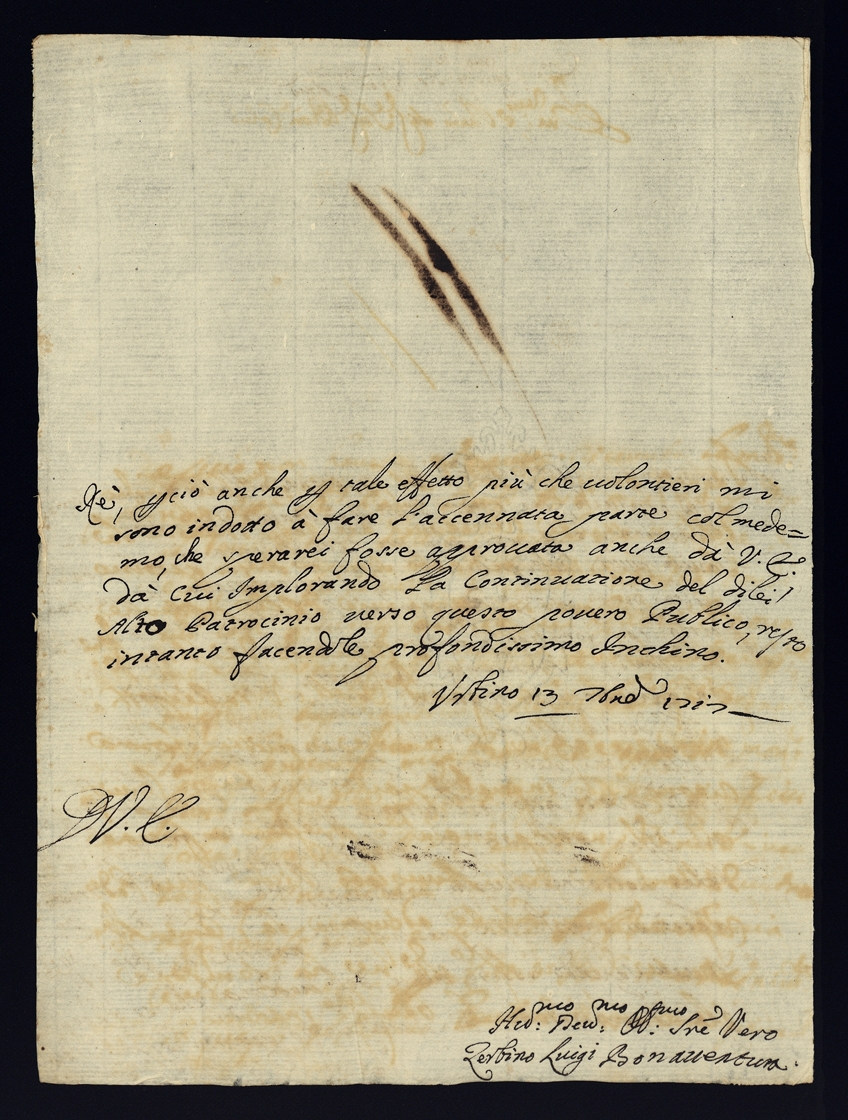 Rè, p ciò anche p tale effetto più che uolontieri mi
sono indotto à fare l'accennata parte col mede=
mo, che sperarei fosse approuata anche dà V. E.
dà Cui Implorando La Continuatione del di lei
Alto Patrocinio uerso questo pouero Publico, resto
intanto facendole profondissimo Inchino.
Vrbino 13 9bre 1717
D V. E.
Hu:mo Deu:mo Ob:mo Sre Vero
Luigi Bonauentura